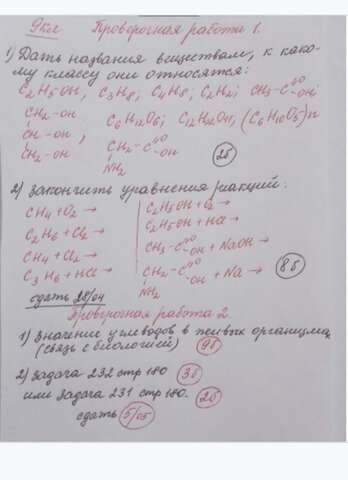 9кл Проверочная работа 1.
1) Дать названия веществам, к како-
му классу они относятся:
C2H5OH, C3H8; C4H8; C2H2; CH3-C=O OH;
CH2-OH
CH-OH ,
CH2-OH
C6H12O6; C12H22O11, (C6H10O5)n
CH2-C=O OH
NH2
2б
2) Закончить уравнения реакций:
CH4+O2→
C2H6+Cl2→
CH4+Cl2→
C3H6+HCl→
C2H5OH+O2→
C2H5OH+HCl→
CH3-C=O OH+NaOH→
CH2-C=O OH+Na→
NH2
8б
сдать 28/04
Проверочная работа 2.
1) Значение углеводов в живых организмах
(связь с биологией) 9б
2) Задача 232 стр 180 3б
или Задача 231 стр 180. 2б
сдать 5/05